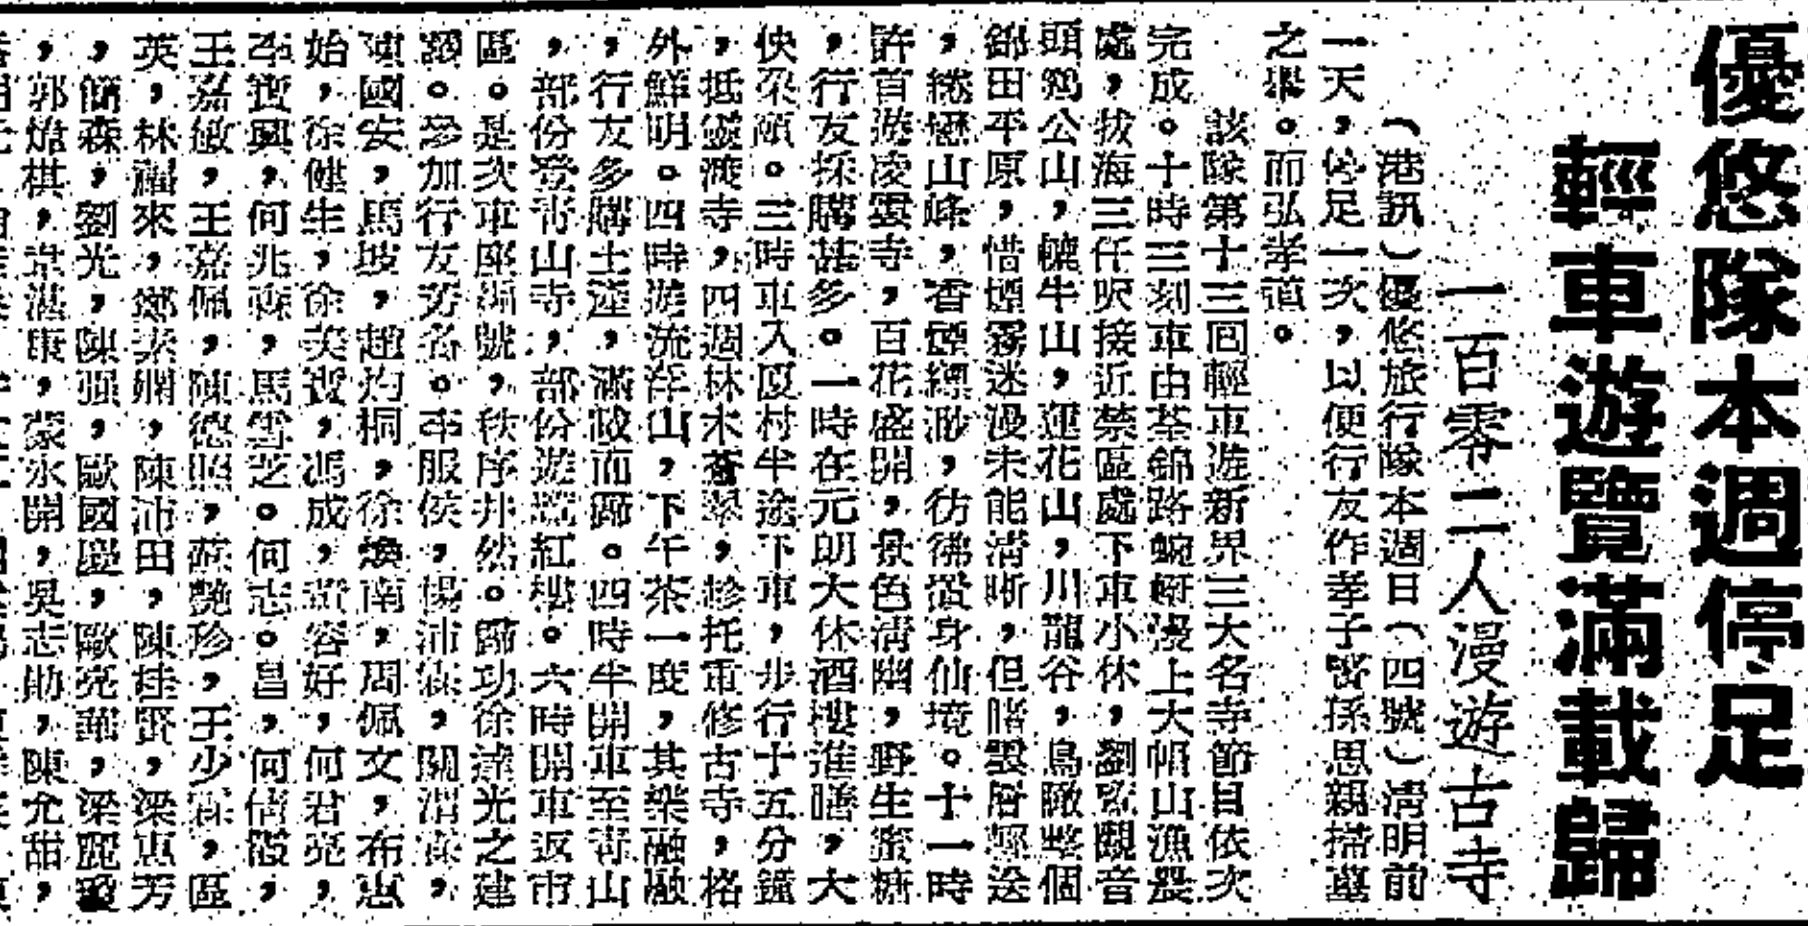 優悠隊本週停足
輕車遊覽滿載歸
一百零二人漫遊古寺
（港訊）優悠旅行隊本週日（四號）清明前
一天，停足一次，以便行友作孝子賢孫思親掃墓
之舉。而弘孝道。
該隊第十三回輕車遊新界三大名寺節目依次
完成。十時三刻車由荃錦路蜿蜒漫上大帽山漁農
處，拔海三仟呎接近禁區處下車小休，劉覽觀音
頭鷄公山，犢牛山，蓮花山，川龍谷，鳥瞰整個
錦田平原，惜煙霧迷漫未能清晰，但睹雲層輕送
，繞山峰，香煙縹渺，彷彿置身仙境。十一時
許首遊凌雲寺，百花盛開，景色清幽，野生蜜糖
，行友採購甚多。一時在元朗大休酒樓進膳，大
快朶頤。三時車入厦村半途下車，步行十五分鐘
，抵靈渡寺，四週林木蒼翠，杉托重修古寺，格
外鮮明。四時遊流浮山，下午茶一度，其樂融融
，行友多購土產，滿載而歸。四時半開車至青山
，部份登青山寺，部份遊覽紅樓。六時開車返市
區。是次車座滿號，秩序井然。歸功徐達光之建
議。參加行友芳名。車服侯，楊沛森，關渭
陳國安，馬坡，趙灼桐，徐煥南，周佩文，布惠
始，徐健生，徐美賢，馮成，黃容好，何君亮，
李寶興，何兆森，馬雪芝。何志。昌，何倩霞，
王嘉敏，王嘉佩，陳德照，蘇艷珍，王少霖，區
英，林羅來，鄭素嫻，陳沛田，陳桂賢，梁惠芳
，簡森，劉光，陳强，歐國慶，歐亮華，梁麗瓊
，郭燴棋，韋湛康，蒙永開，吳志勛，陳允甜，